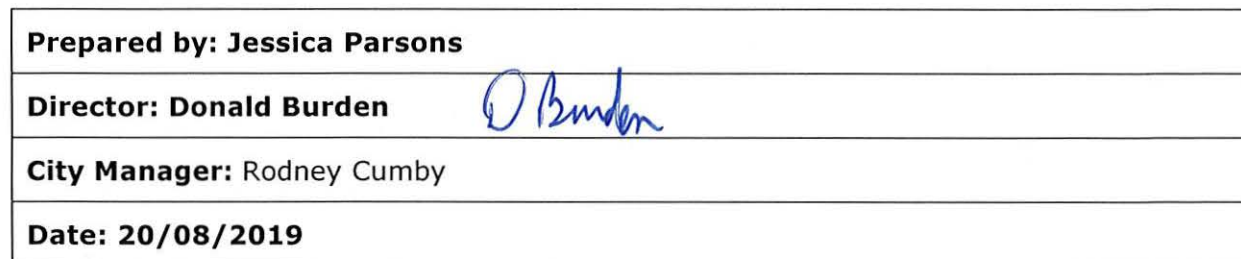 Prepared by: Jessica Parsons
Director: Donald Burden D Burden
City Manager: Rodney Cumby
Date: 20/08/2019